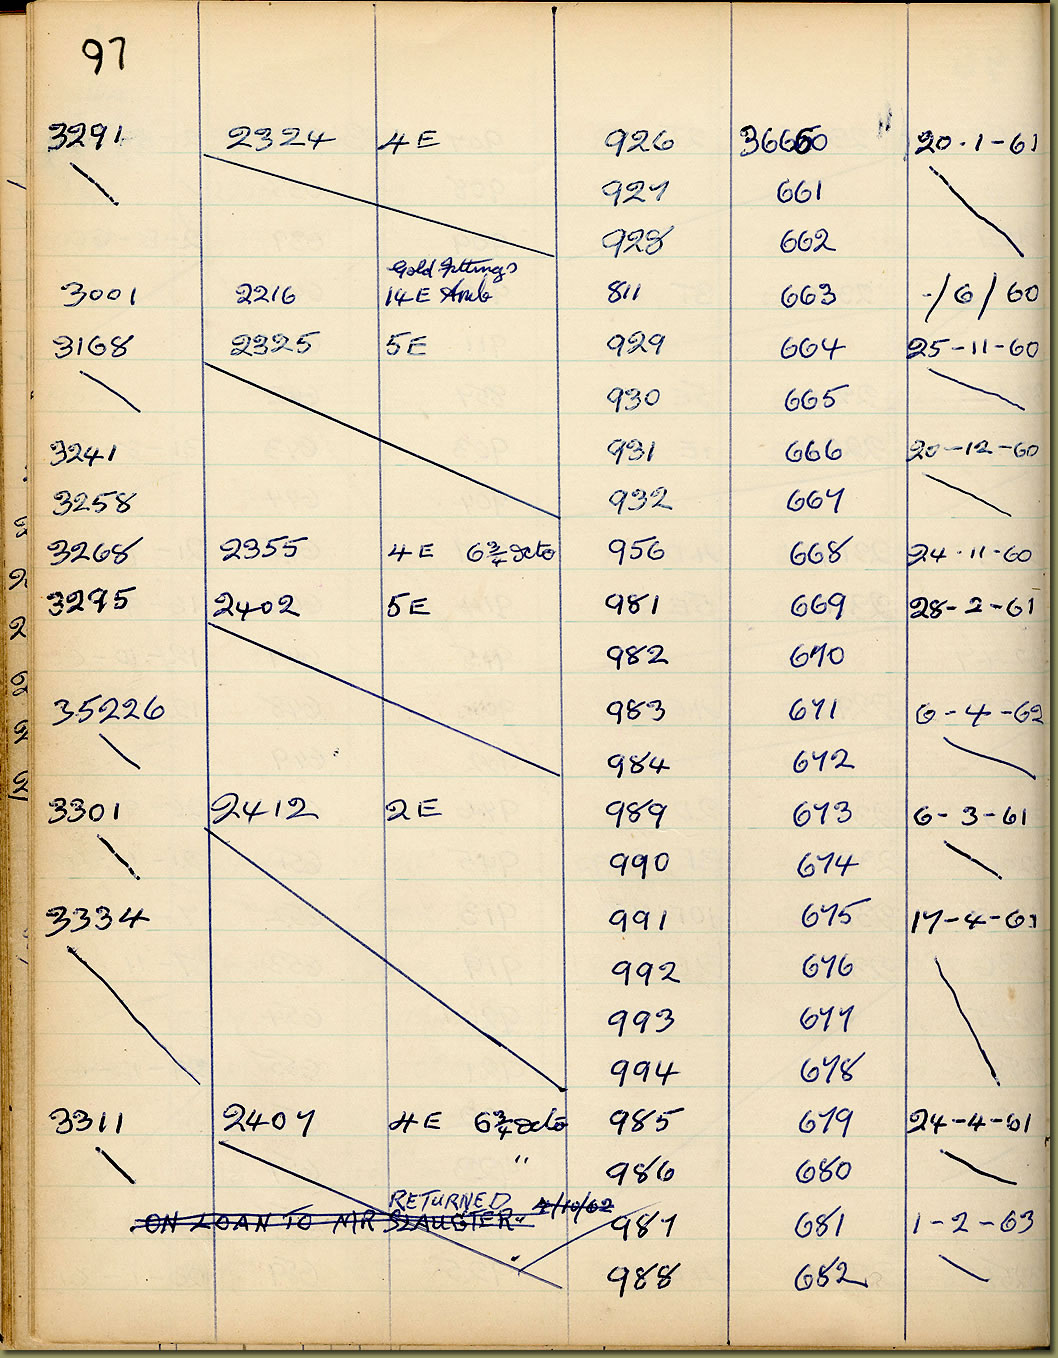 97
3291 2324 4E 926 36660 20·1-61
927 661
928 662
Gold Fittings
3001 2216 14E 811 663 -/6/60
3168 2325 5E 929 664 25-11-60
930 665
3241 931 666 20-12-60
3258 932 667
3268 2355 4E 6 3/4 956 668 24·11-60
3295 2402 5E 981 669 28-2-61
982 670
35226 983 671 6-4-62
984 672
3301 2412 2E 989 673 6-3-61
990 674
3334 991 675 17-4-61
992 676
993 677
994 678
3311 2407 4E 6 3/4 985 679 24-4-61
" 986 680
RETURNED 4/10/62
ON LOAN TO MR SLAUGTER 987 681 1-2-63
988 682